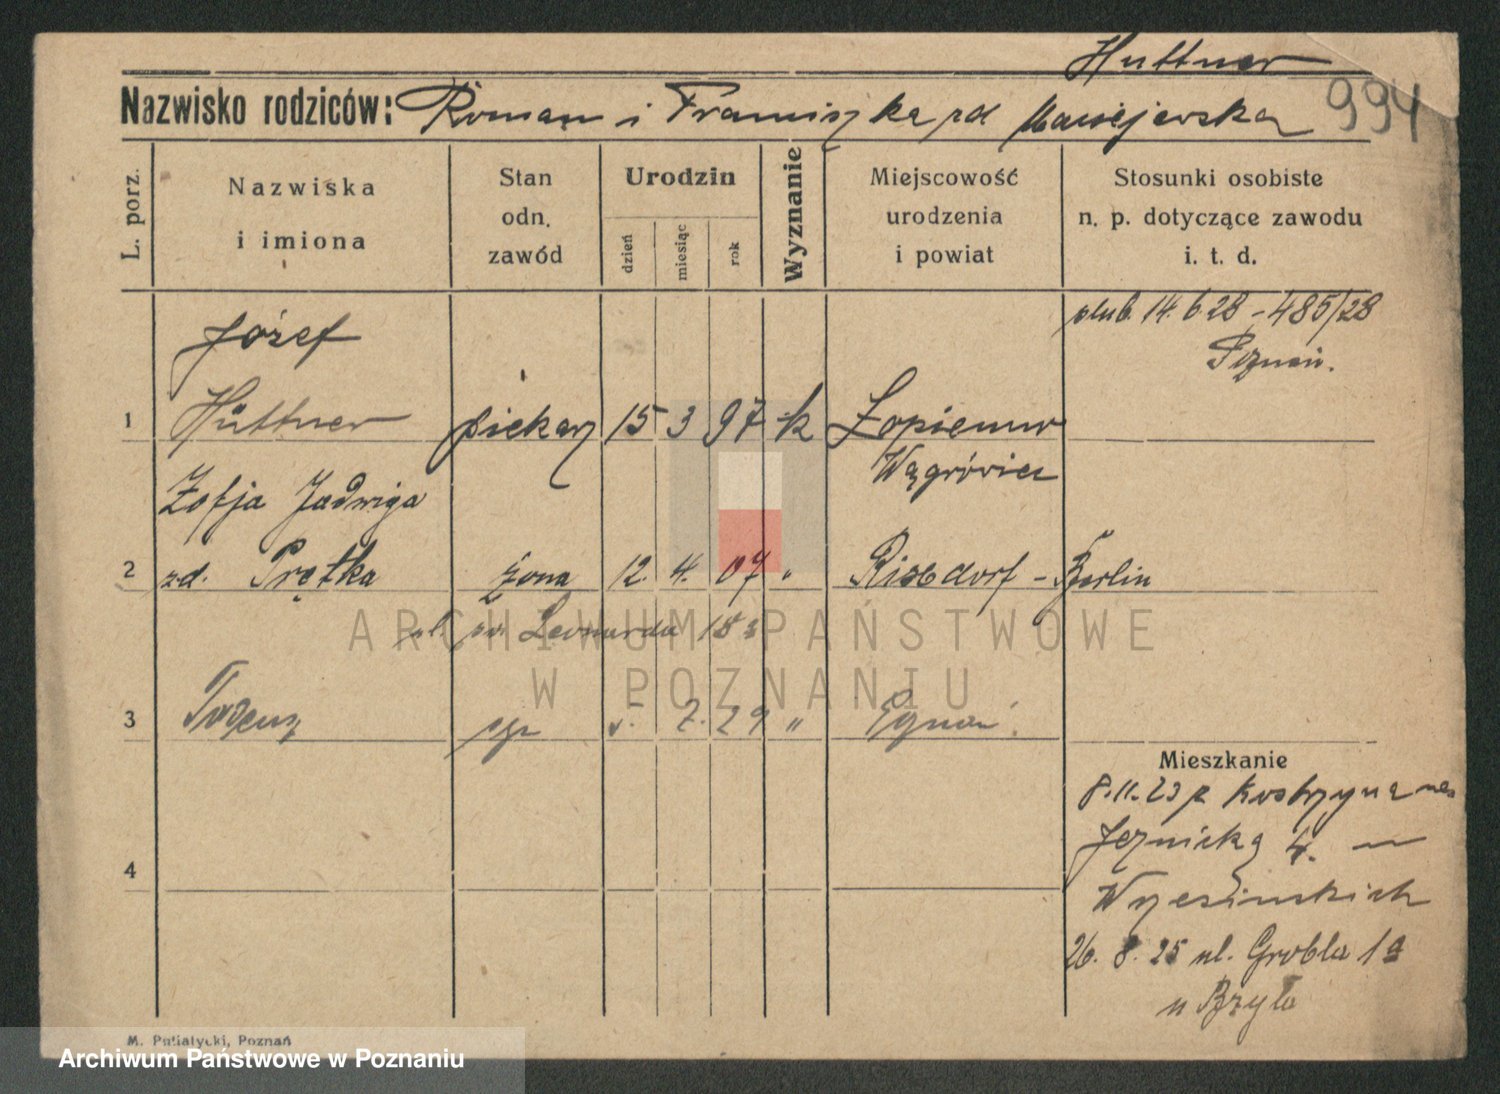 Huttner
Nazwisko rodziców: Roman i Franciszka zd Maciejewska 994
L. porz.
Nazwiska
i imiona
Stan
odn.
zawód
Urodzin
dzień
miesiąc
rok
Wyznanie
Miejscowość
urodzenia
i powiat
Stosunki osobiste
n. p. dotyczące zawodu
i. t. d.
ślub. 14. 6 28 - 485/28
Poznań.
Józef
1 Hüttner piekarz 15 3 97 k Łopienno
Wągrówiec
Zofja Jadwiga
2 zd. Prętka żona 12. 4. 07 " Rixdorf - Berlin
ul. św. Leonarda 15
3 syn 7. 29 " Poznań.
4
Mieszkanie
8.11.23 z Kostrzyna
4.
Wrzesińskich
26. 8. 25 ul. Grobla 1a
u Bzyla
M. Putiatycki, Poznań
ARCHIWUM PAŃSTWOWE
W POZNANIU
Archiwum Państwowe w Poznaniu